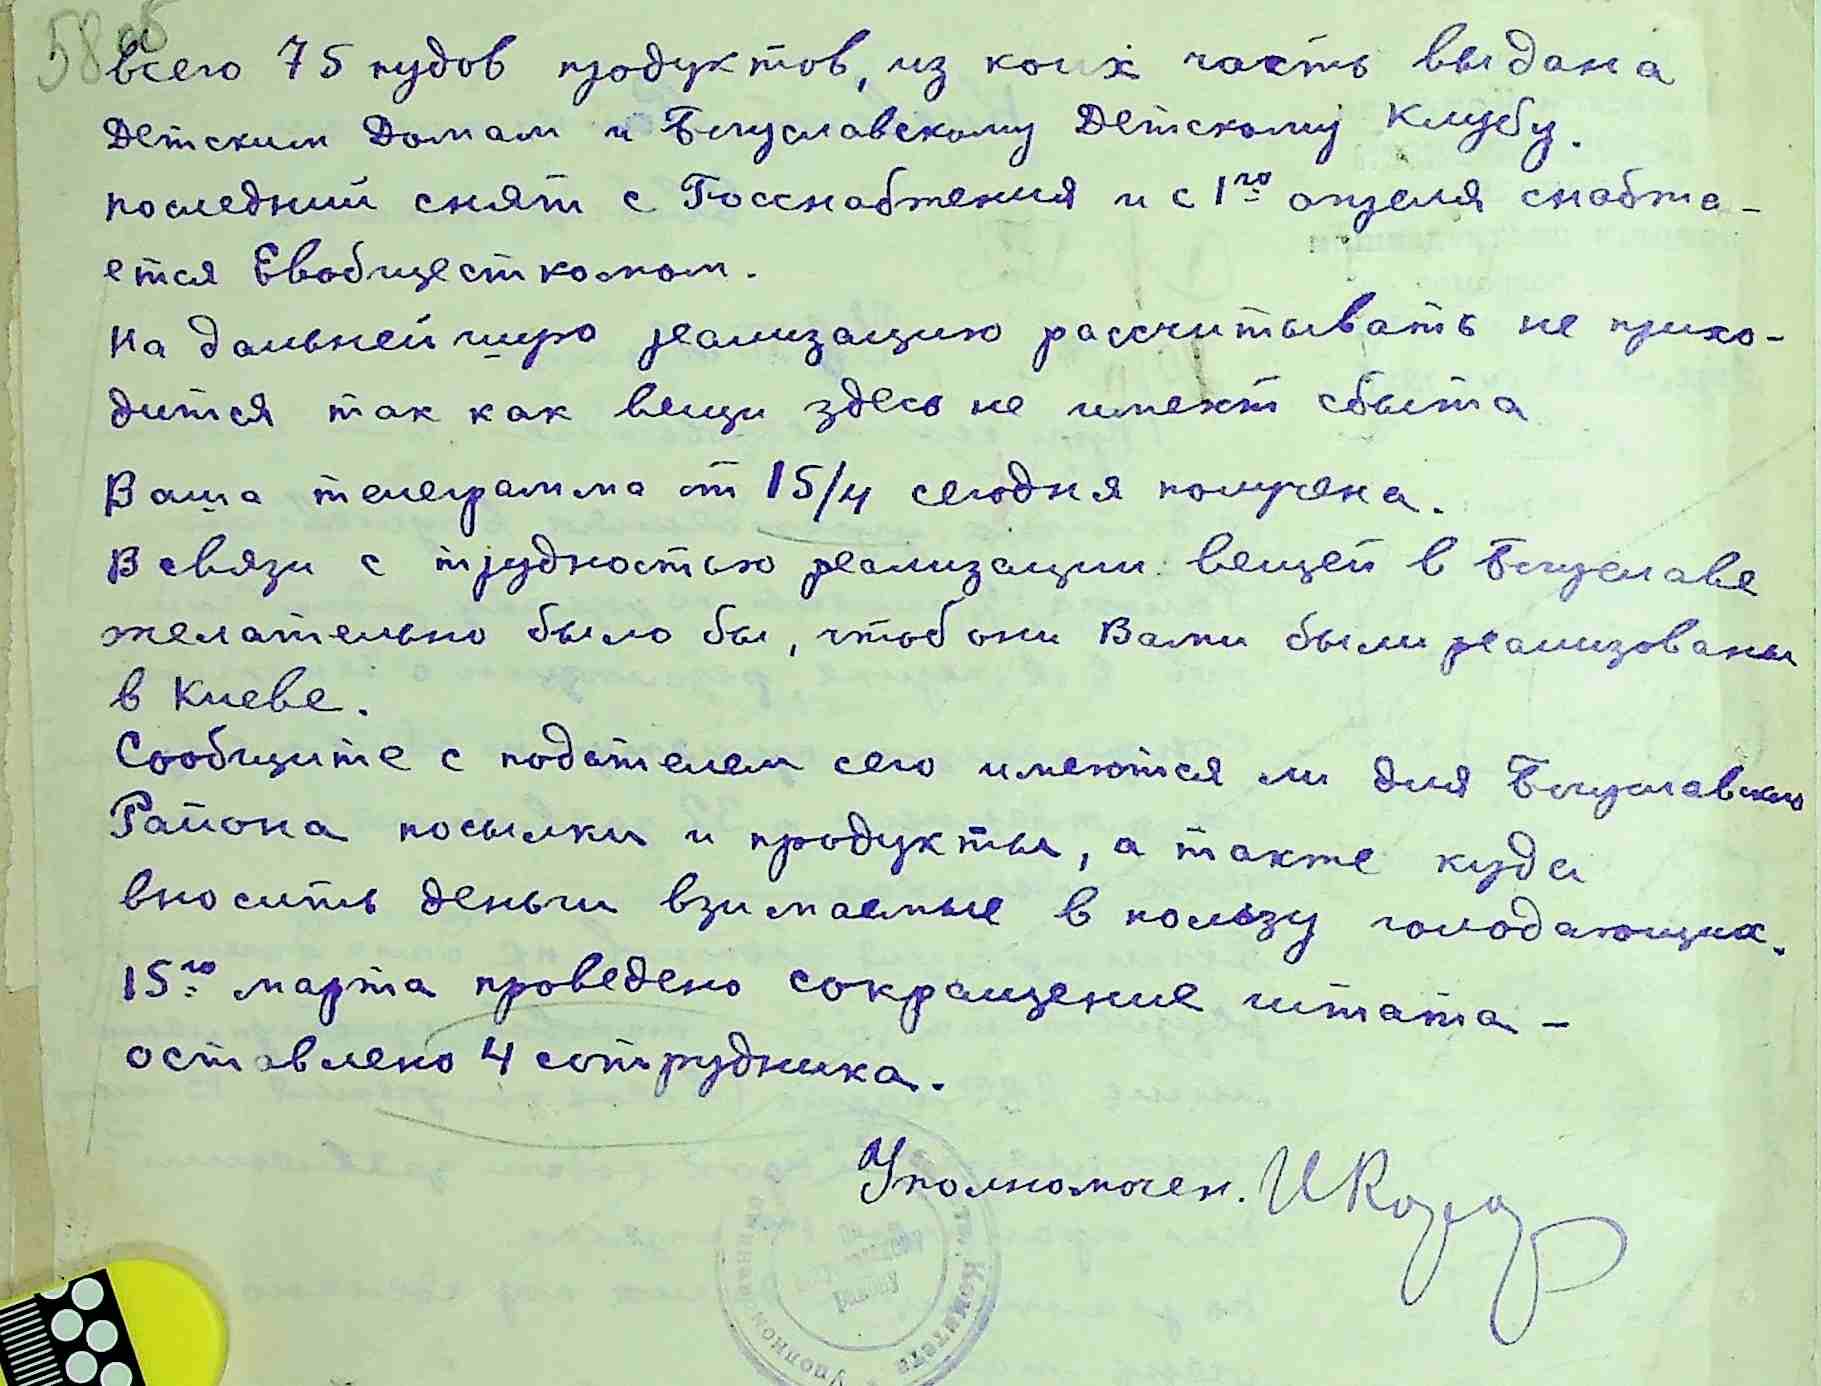 58 об
всего 75 пудов продуктов, из коих часть выдана
Детским Домам и Богуславскому Детскому Клубу.
последний снят с Госснабжения и с 1го апреля снабжа-
ется Евобщесткомом.
На дальнейшую реализацию рассчитывать не прихо-
дится так как вещи здесь не имеют сбыта
Ваша телеграмма от 15/4 сегодня получена.
В связи с трудностью реализации вещей в Богуславе
желательно было бы, чтоб они Вами были реализованы
в Киеве.
Сообщите с подателем сего имеются ли для Богуславского
Района посылки и продукты, а также куда
вносить деньги взимаемые в пользу голодающих.
15го марта проведено сокращение штата –
оставлено 4 сотрудника.
Уполномочен.